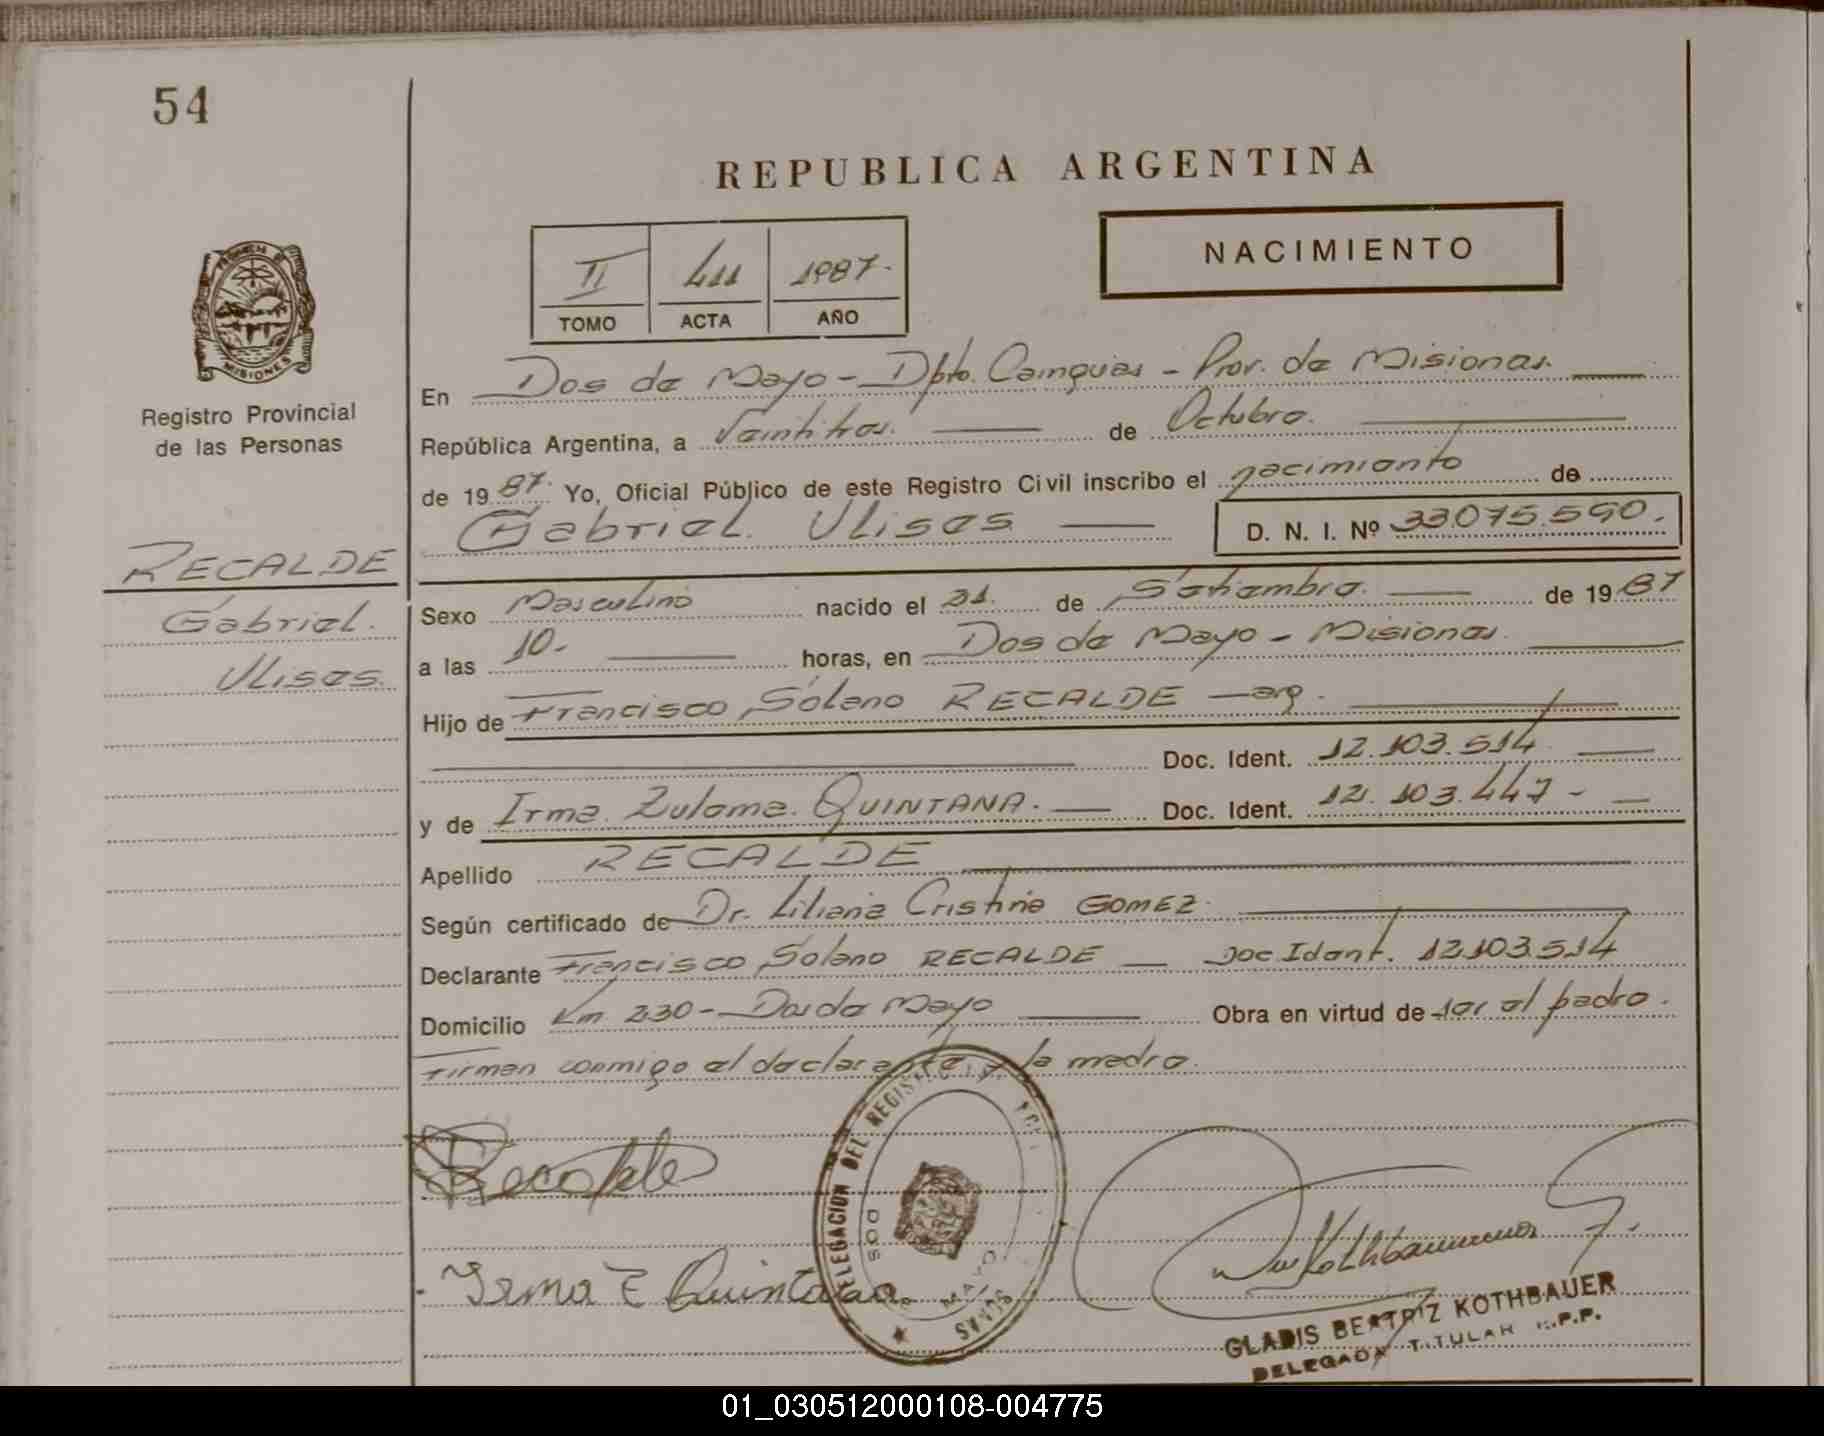 54
REPUBLICA ARGENTINA
NACIMIENTO
II 411 1987.
TOMO ACTA AÑO
PROVINCIA DE MISIONES
Registro Provincial
de las Personas
En Dos de Mayo - Dpto. Cainguas - Prov. de Misiones.
República Argentina, a Veintitres. de Octubre.
de 19 87. Yo, Oficial Público de este Registro Civil inscribo el nacimiento de
Gabriel Ulises D. N. I. Nº 33.075.590.
RECALDE
Gabriel.
Ulises.
Sexo Masculino nacido el 21. de Setiembre. de 19 87
a las 10. horas, en Dos de Mayo - Misiones.
Hijo de Francisco Solano RECALDE - arg.
Doc. Ident. 12.103.514
y de Irma Zulema QUINTANA. Doc. Ident. 12.103.447 -
Apellido RECALDE
Según certificado de Dr. Liliana Cristina GOMEZ.
Declarante Francisco Solano RECALDE - Doc Ident. 12.103.514
Domicilio Km. 230 - Dos de Mayo Obra en virtud de ser el padre.
Firman conmigo el declarante y la madre.
Recalde
DELEGACION DEL REGISTRO
DOS DE MAYO
Irma Z Quintana.
Kothbauer
GLADIS BEATRIZ KOTHBAUER
DELEGADA TITULAR R.P.P.
01_030512000108-004775